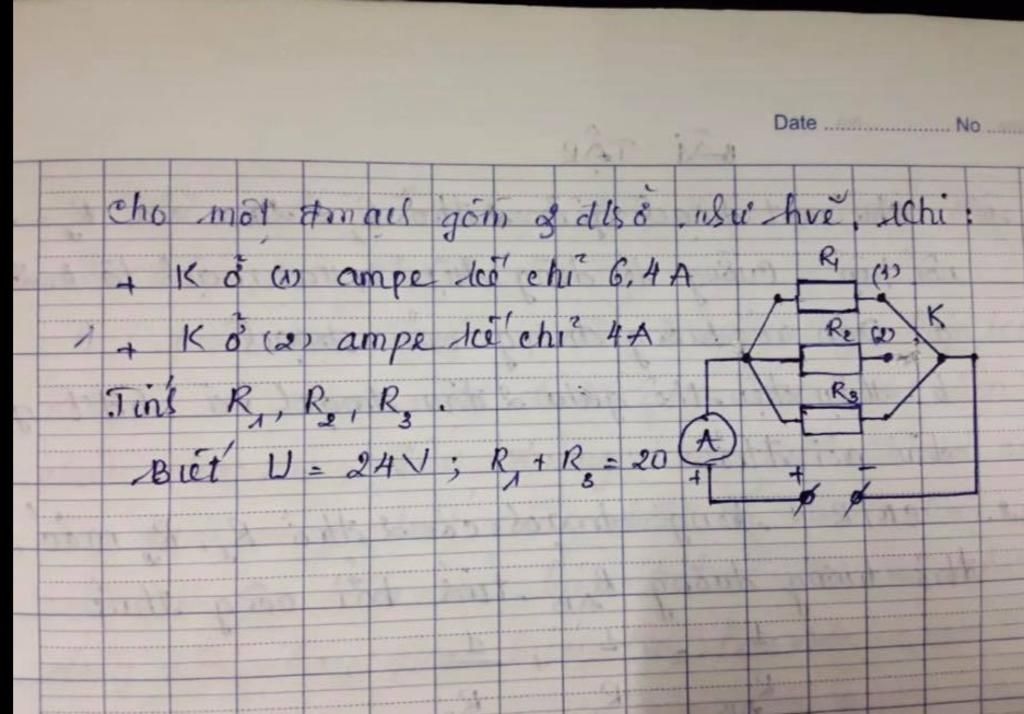 Date ........................ No ......
cho một đmạch gồm 3 đtsở như hvẽ. Khi:
+ K ở (1) ampe kế chỉ 6,4A
+ K ở (2) ampe kế chỉ 4A
Tính R1, R2, R3.
Biết U = 24V; R1 + R3 = 20
R1 (1)
K
R2 (2)
R3
A
+ + -